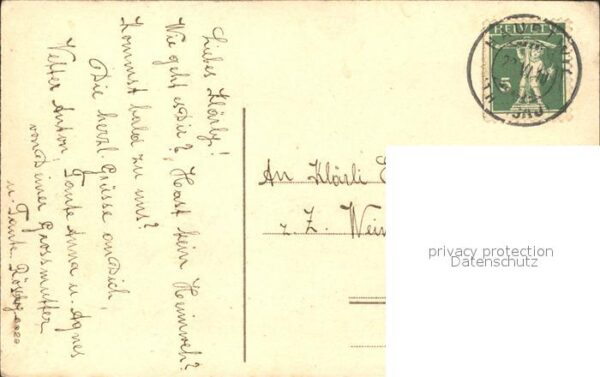 Liebes Klärly!
Wie geht es Dir?, Hast kein Heimweh?
Kommst bald zu uns?
Die herzl. Grüsse an Dich,
Vetter Anton, Tante Anna u. Agnes
von Deiner Grossmutter
u. Tante
An Klärli
z. Z.
HELVETIA
5
privacy protection
Datenschutz